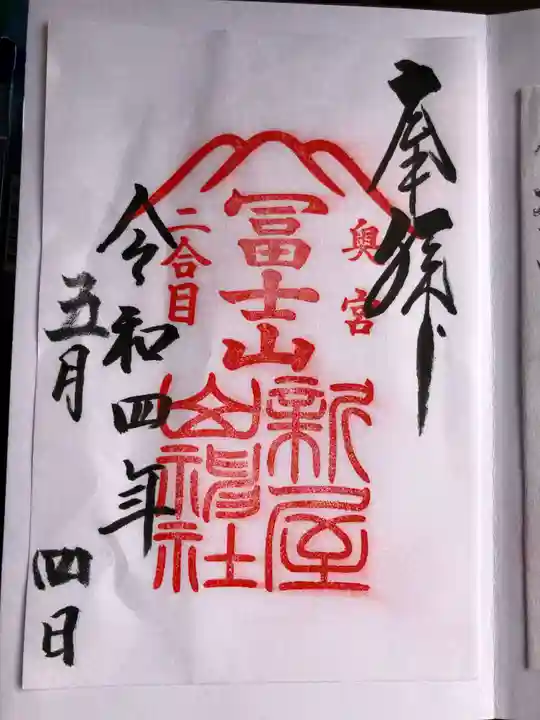 奉拝
奥宮
冨士山
二合目
新屋
山神社
令和四年
五月
四日